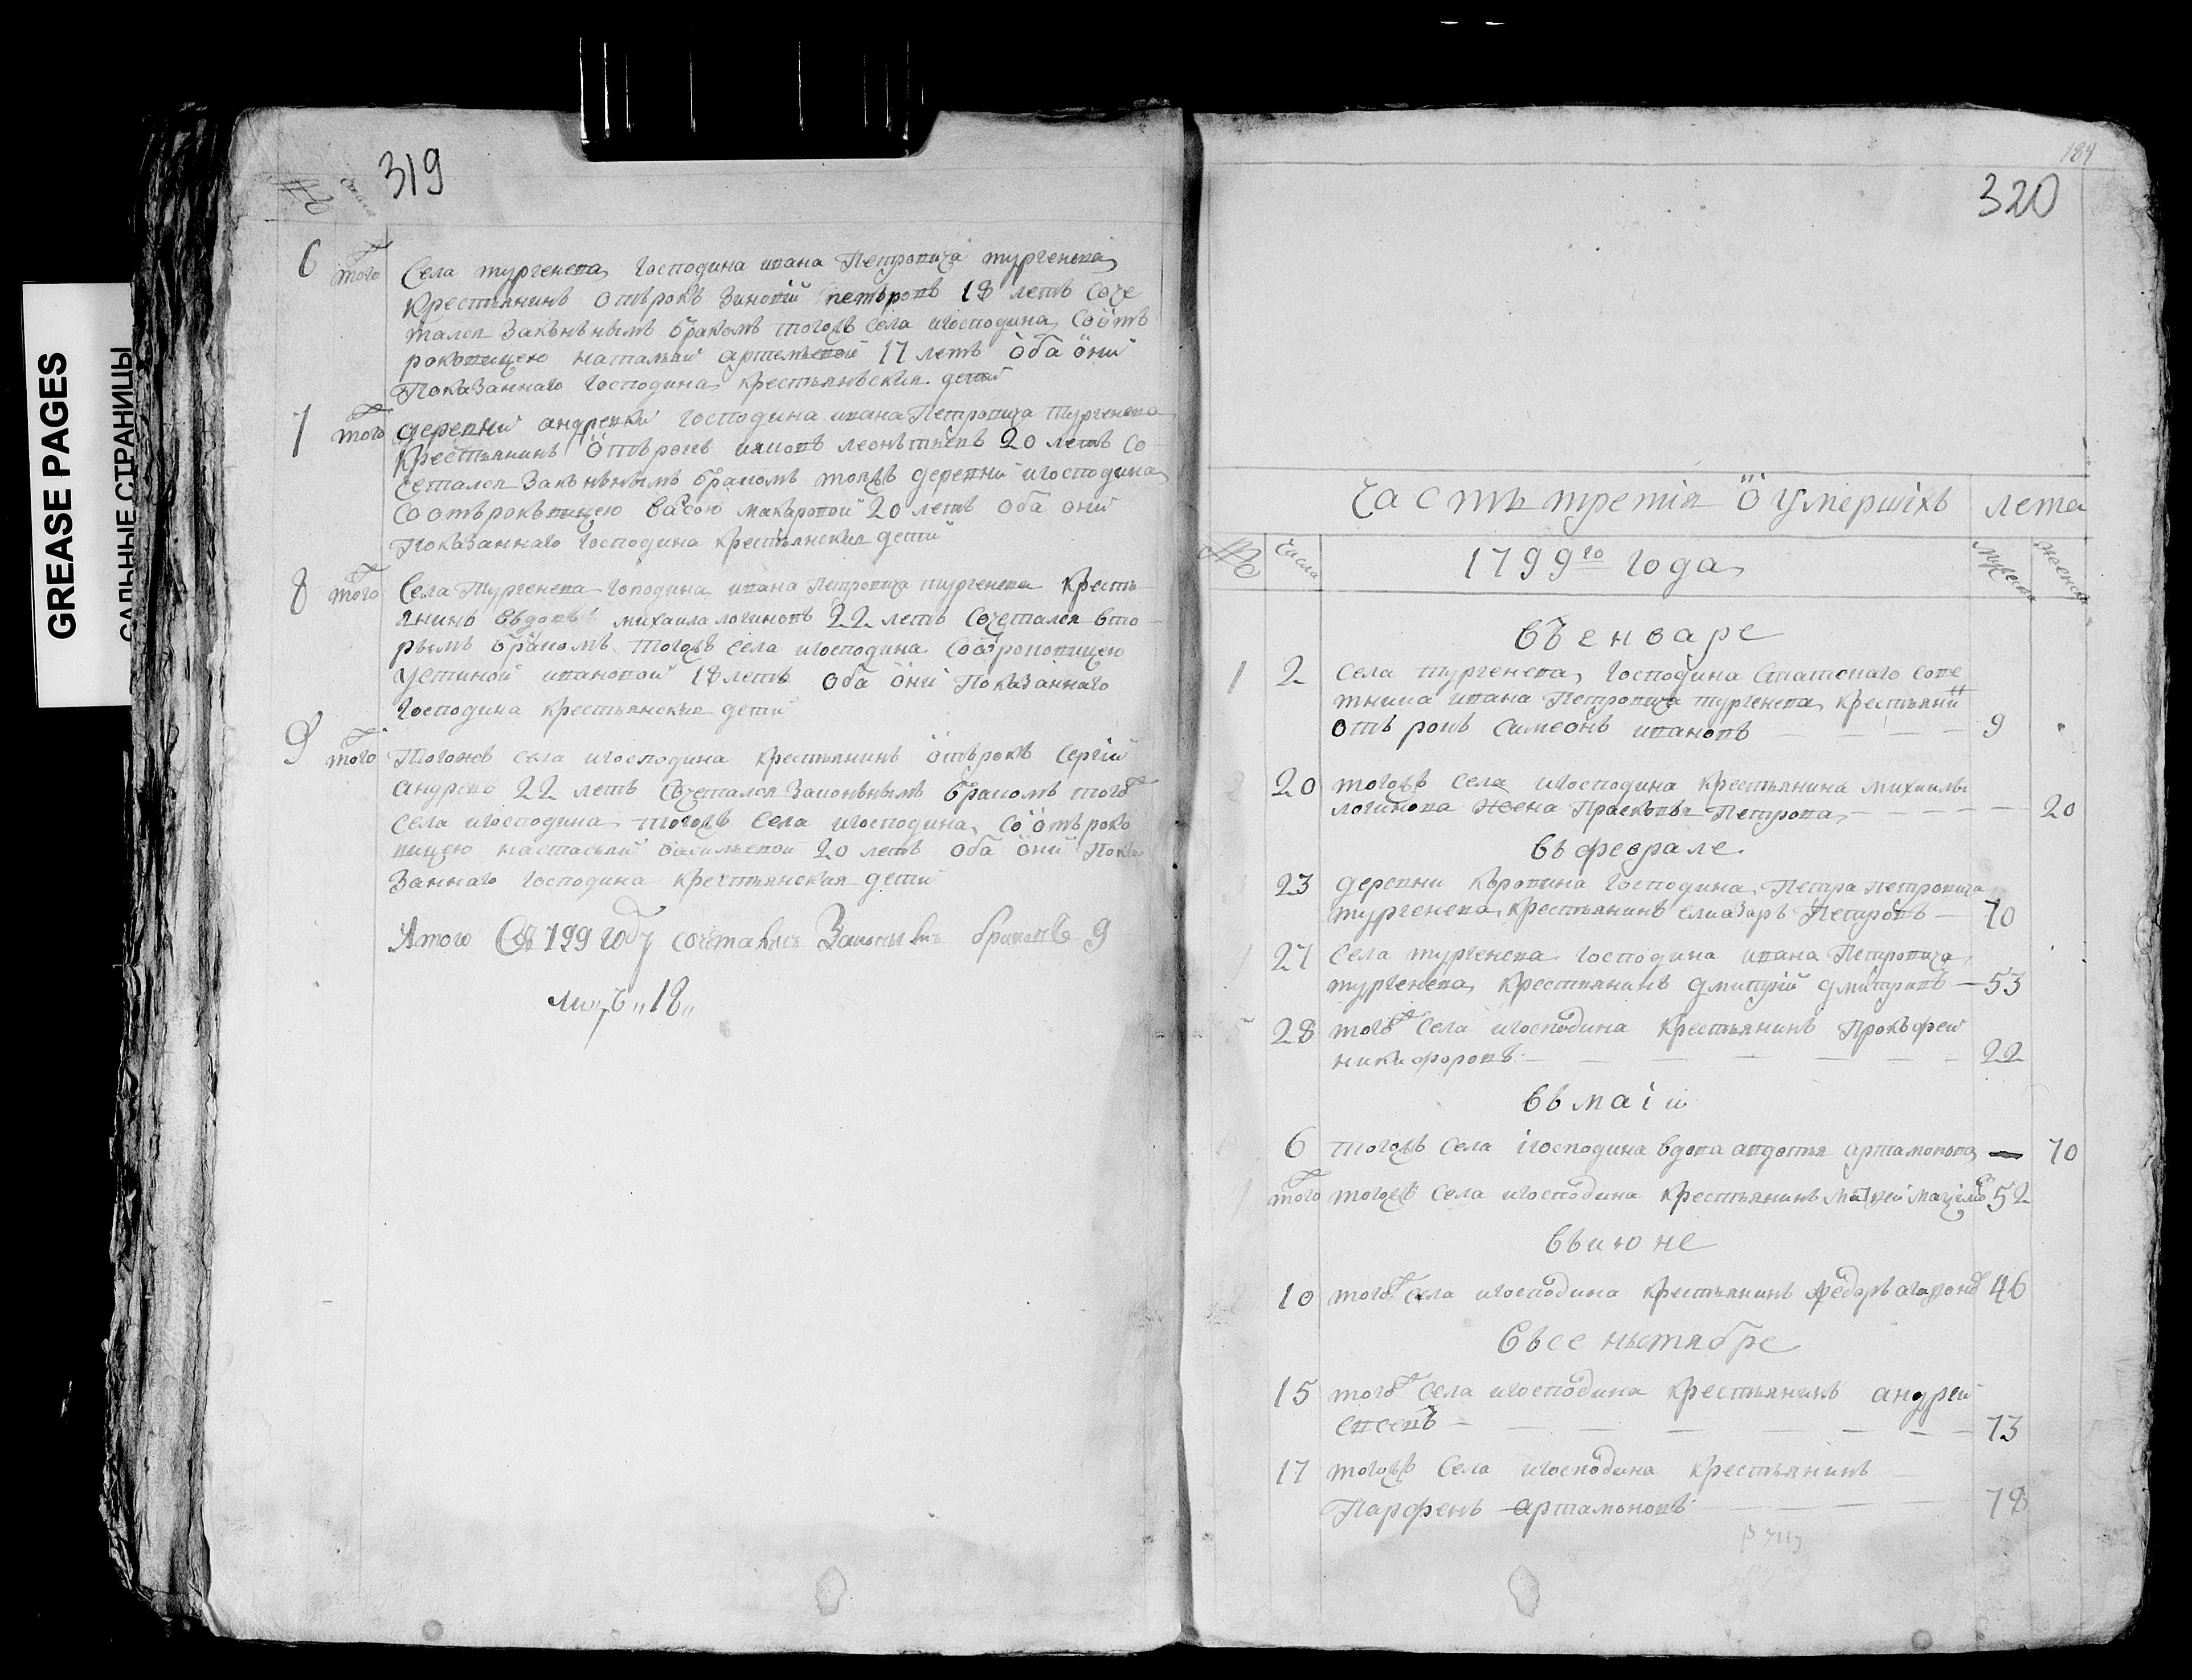 GREASE PAGES
САЛЬНЫЕ СТРАНИЦЫ
319
№
числа
6 тогоже Села тургенева господина ивана Петровича тургенева
крестьянинъ отърокъ Зиновiй петъровъ 18 летъ Соче
тался Закънънымъ бракомъ тогожъ села игосподина Соотъ
роковицею наталъи артемьевой 17 летъ оба они
Показаннаго господина крестьянъския дети
7 тогоже деревни андревки господина ивана Петровича Тургенева
крестьянинъ отърокъ иковъ леонътиевъ 20 летъ Со
четался Законънымъ бракомъ тояжъ деревни игосподина
Соотърокъвицею Васою макаровой 20 летъ оба они
показаннаго господина крестьянския дети
8 тогоже Села Тургенева гоподина ивана Петровича тургенева кресть
янинъ вдовъ михаила логиновъ 22 летъ Сочетался вто
рымъ бракомъ тогожъ села игосподина Соотроковицею
устиной ивановой 18 летъ оба они Показаннаго
господина крестьянския дети
9 тогоже Тогожъ села игосподина крестьянинъ отърокъ Сергiй
андревъ 22 летъ Сочетался Законънымъ бракомъ тогоже
села игосподина тогожъ села игосподина Соотъроко
вицею настасьей васильевой 20 летъ оба они Пока
Заннаго господина крестьянския дети
Итого 799 году сочеталось Законныхъ браковъ 9
лицъ „18„
184
320
Часть третiя о умершiхъ лета
№ числа 1799го года мужска женска
въенваре
1 2 села тургенева господина Статскаго сове
тника ивана Петровича тургенева крестьянин
отърокъ симеонъ ивановъ — 9
2 20 тогожъ села игосподина крестьянина михаилы
логинова жена Прасковья Петрова — 20
въ феврале
3 23 деревни Коровина господина Петра петровича
тургенева крестьянинъ елиазаръ Петровъ — 70
4 27 села тургенева господина ивана Петровича
тургенева крестьянинъ дмитрiй дмитревъ — 53
28 тогоже села игосподина крестьянинъ Прокъфей
никифоровъ — 22
въ маiи
6 тогожъ села iгосподина вдова авдотья артамонова — 70
тогоже тогожъ села игосподина крестьянинъ 52
въиюне
10 тогоже села игосподина крестьянинъ федоръ агафоновъ 46
въсе нътябре
15 тогоже села игосподина крестьянинъ андрей
евсевъ — 73
17 тогожъ села игосподина крестьянинъ
Парфенъ артамоновъ — 78